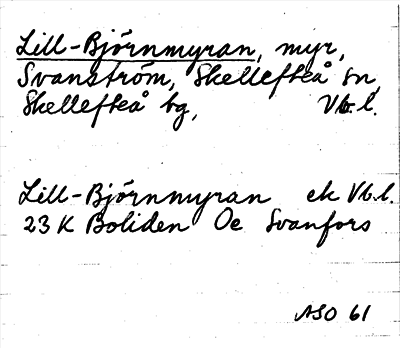 Lill-Björnmyran, myr,
Svanström, Skellefteå sn,
Skellefteå bg, Vb.l.
Lill-Björnmyran ek Vb.l.
23 K Boliden Oe Svanfors
ASO 61